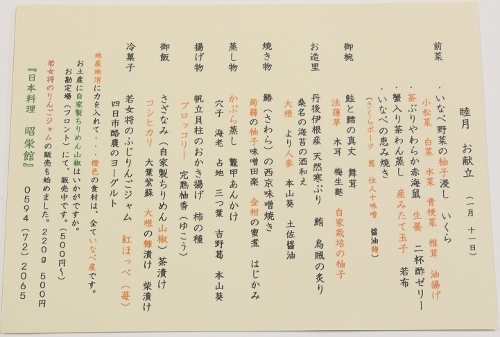 睦月 お献立 (一月 十一日)
前菜
・いなべ野菜の柚子浸し いくら
小松菜 白菜 水菜 青梗菜 椎茸 油揚げ
・茶ぶりやわらか赤海鼠 生姜 二杯酢ゼリー
・蟹入り茶わん蒸し 産みたて玉子 若布
・いなべの恵み焼き
(さくらポーク 葱 住人十味噌 醤油麹)
御椀
鮭と鱈の真丈 舞茸
法蓮草 木耳 梅生麩 自家栽培の柚子
お造里
丹後伊根産 天然寒ぶり 鮪 烏賊の炙り
桑名の海苔の酒和え
大根 より人参 本山葵 土佐醤油
焼き物
鰆(さわら)の西京味噌焼き
蒟蒻の柚子味噌田楽 金柑の蜜煮 はじかみ
蒸し物
かぶら蒸し 鼈甲あんかけ
穴子 海老 占地 三つ葉 吉野葛 本山葵
揚げ物
帆立貝柱のおかき揚げ 柿の種
ブロッコリー 完熟柚香(ゆこう)
御飯
さざなみ(自家製ちりめん山椒)茶漬け
コシヒカリ 大葉紫蘇 大根の糠漬け 柴漬け
冷菓子
若女将のふじりんごジャム 紅ほっぺ(苺)
四日市酪農のヨーグルト
地産地消に力を入れて・・・橙色の食材は、全ていなべ産です。
お土産に自家製ちりめん山椒はいかがですか。
お勘定場(フロント)にて、販売中です。(500円〜)
若女将のりんごジャムの販売も始めました。220g 500円
『日本料理 昭栄館』 0594(72)2065